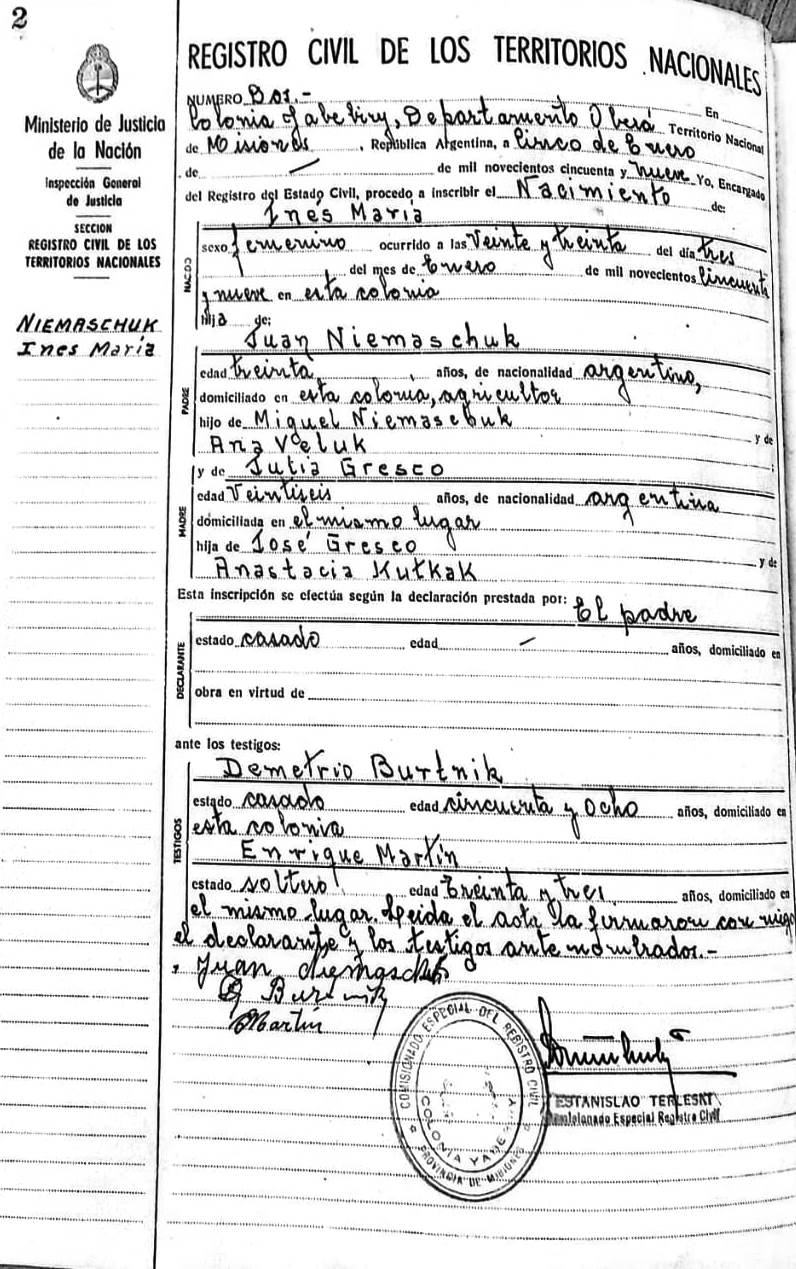 2
REGISTRO CIVIL DE LOS TERRITORIOS NACIONALES
Ministerio de Justicia
de la Nación
Inspección General
de Justicia
SECCION
REGISTRO CIVIL DE LOS
TERRITORIOS NACIONALES
NIEMASCHUK
Ines Maria
NUMERO Dos.- En
Colonia Yabebiry, Departamento Oberá Territorio Nacional
de Misiones, República Argentina, a Cinco de Enero
de — de mil novecientos cincuenta y nueve Yo, Encargado
del Registro del Estado Civil, procedo a inscribir el Nacimiento de:
Ines Maria
NACIDO
sexo femenino ocurrido a las Veinte y treinta del día tres
del mes de Enero de mil novecientos Cincuenta
y nueve en esta colonia
hija de:
Juan Niemaschuk
PADRE
edad treinta años, de nacionalidad argentino,
domiciliado en esta colonia, agricultor
hijo de Miguel Niemaschuk y de
Ana Veluk
y de Julia Gresco
MADRE
edad Veintiseis años, de nacionalidad argentina
domiciliada en el mismo lugar
hija de José Gresco y de
Anastacia Kutkak
Esta inscripción se efectúa según la declaración prestada por: El padre
DECLARANTE
estado casado edad — años, domiciliado en
obra en virtud de
ante los testigos:
Demetrio Burtnik
TESTIGOS
estado casado edad cincuenta y ocho años, domiciliado en
esta colonia
Enrique Martín
estado soltero edad treinta y tres años, domiciliado en
el mismo lugar. Leida el acta la firmaron con migo
el declarante y los testigos ante nombrados.-
Juan
Martin
COMISIONADO ESPECIAL DEL REGISTRO CIVIL
COLONIA
PROVINCIA DE MISIONES
ESTANISLAO TERLESKI
Comisionado Especial Registro Civil